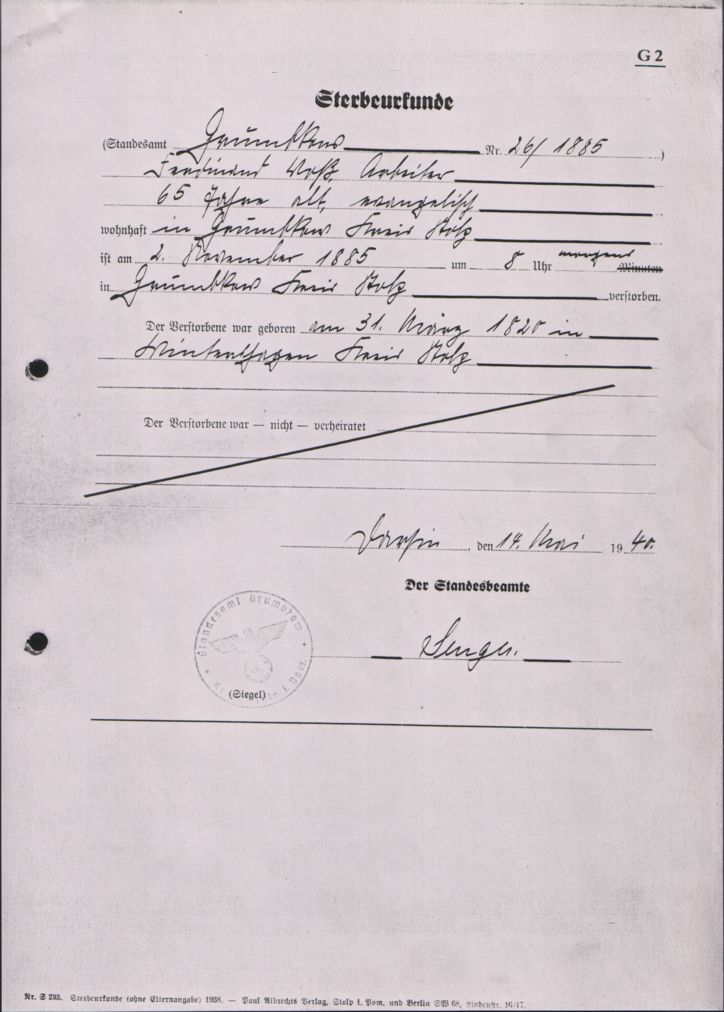 G 2
Sterbeurkunde
(Standesamt Grumbkow Nr. 26/1885)
Ferdinand Voß, Arbeiter
65 Jahre alt, evangelisch
wohnhaft in Grumbkow Kreis Stolp
ist am 2. November 1885 um 8 Uhr morgens Minuten
in Grumbkow Kreis Stolp verstorben.
Der Verstorbene war geboren am 31. März 1820 in
Wintershagen Kreis Stolp
Der Verstorbene war — nicht — verheiratet
Darsin, den 14. Mai 1940.
Der Standesbeamte
Standesamt Grumbkow
i. Pom.
(Siegel)
Nr. S 293. Sterbeurkunde (ohne Elternangabe) 1938. — Paul Albrechts Verlag, Stolp i. Pom. und Berlin SW 68, Lindenstr. 16/17.